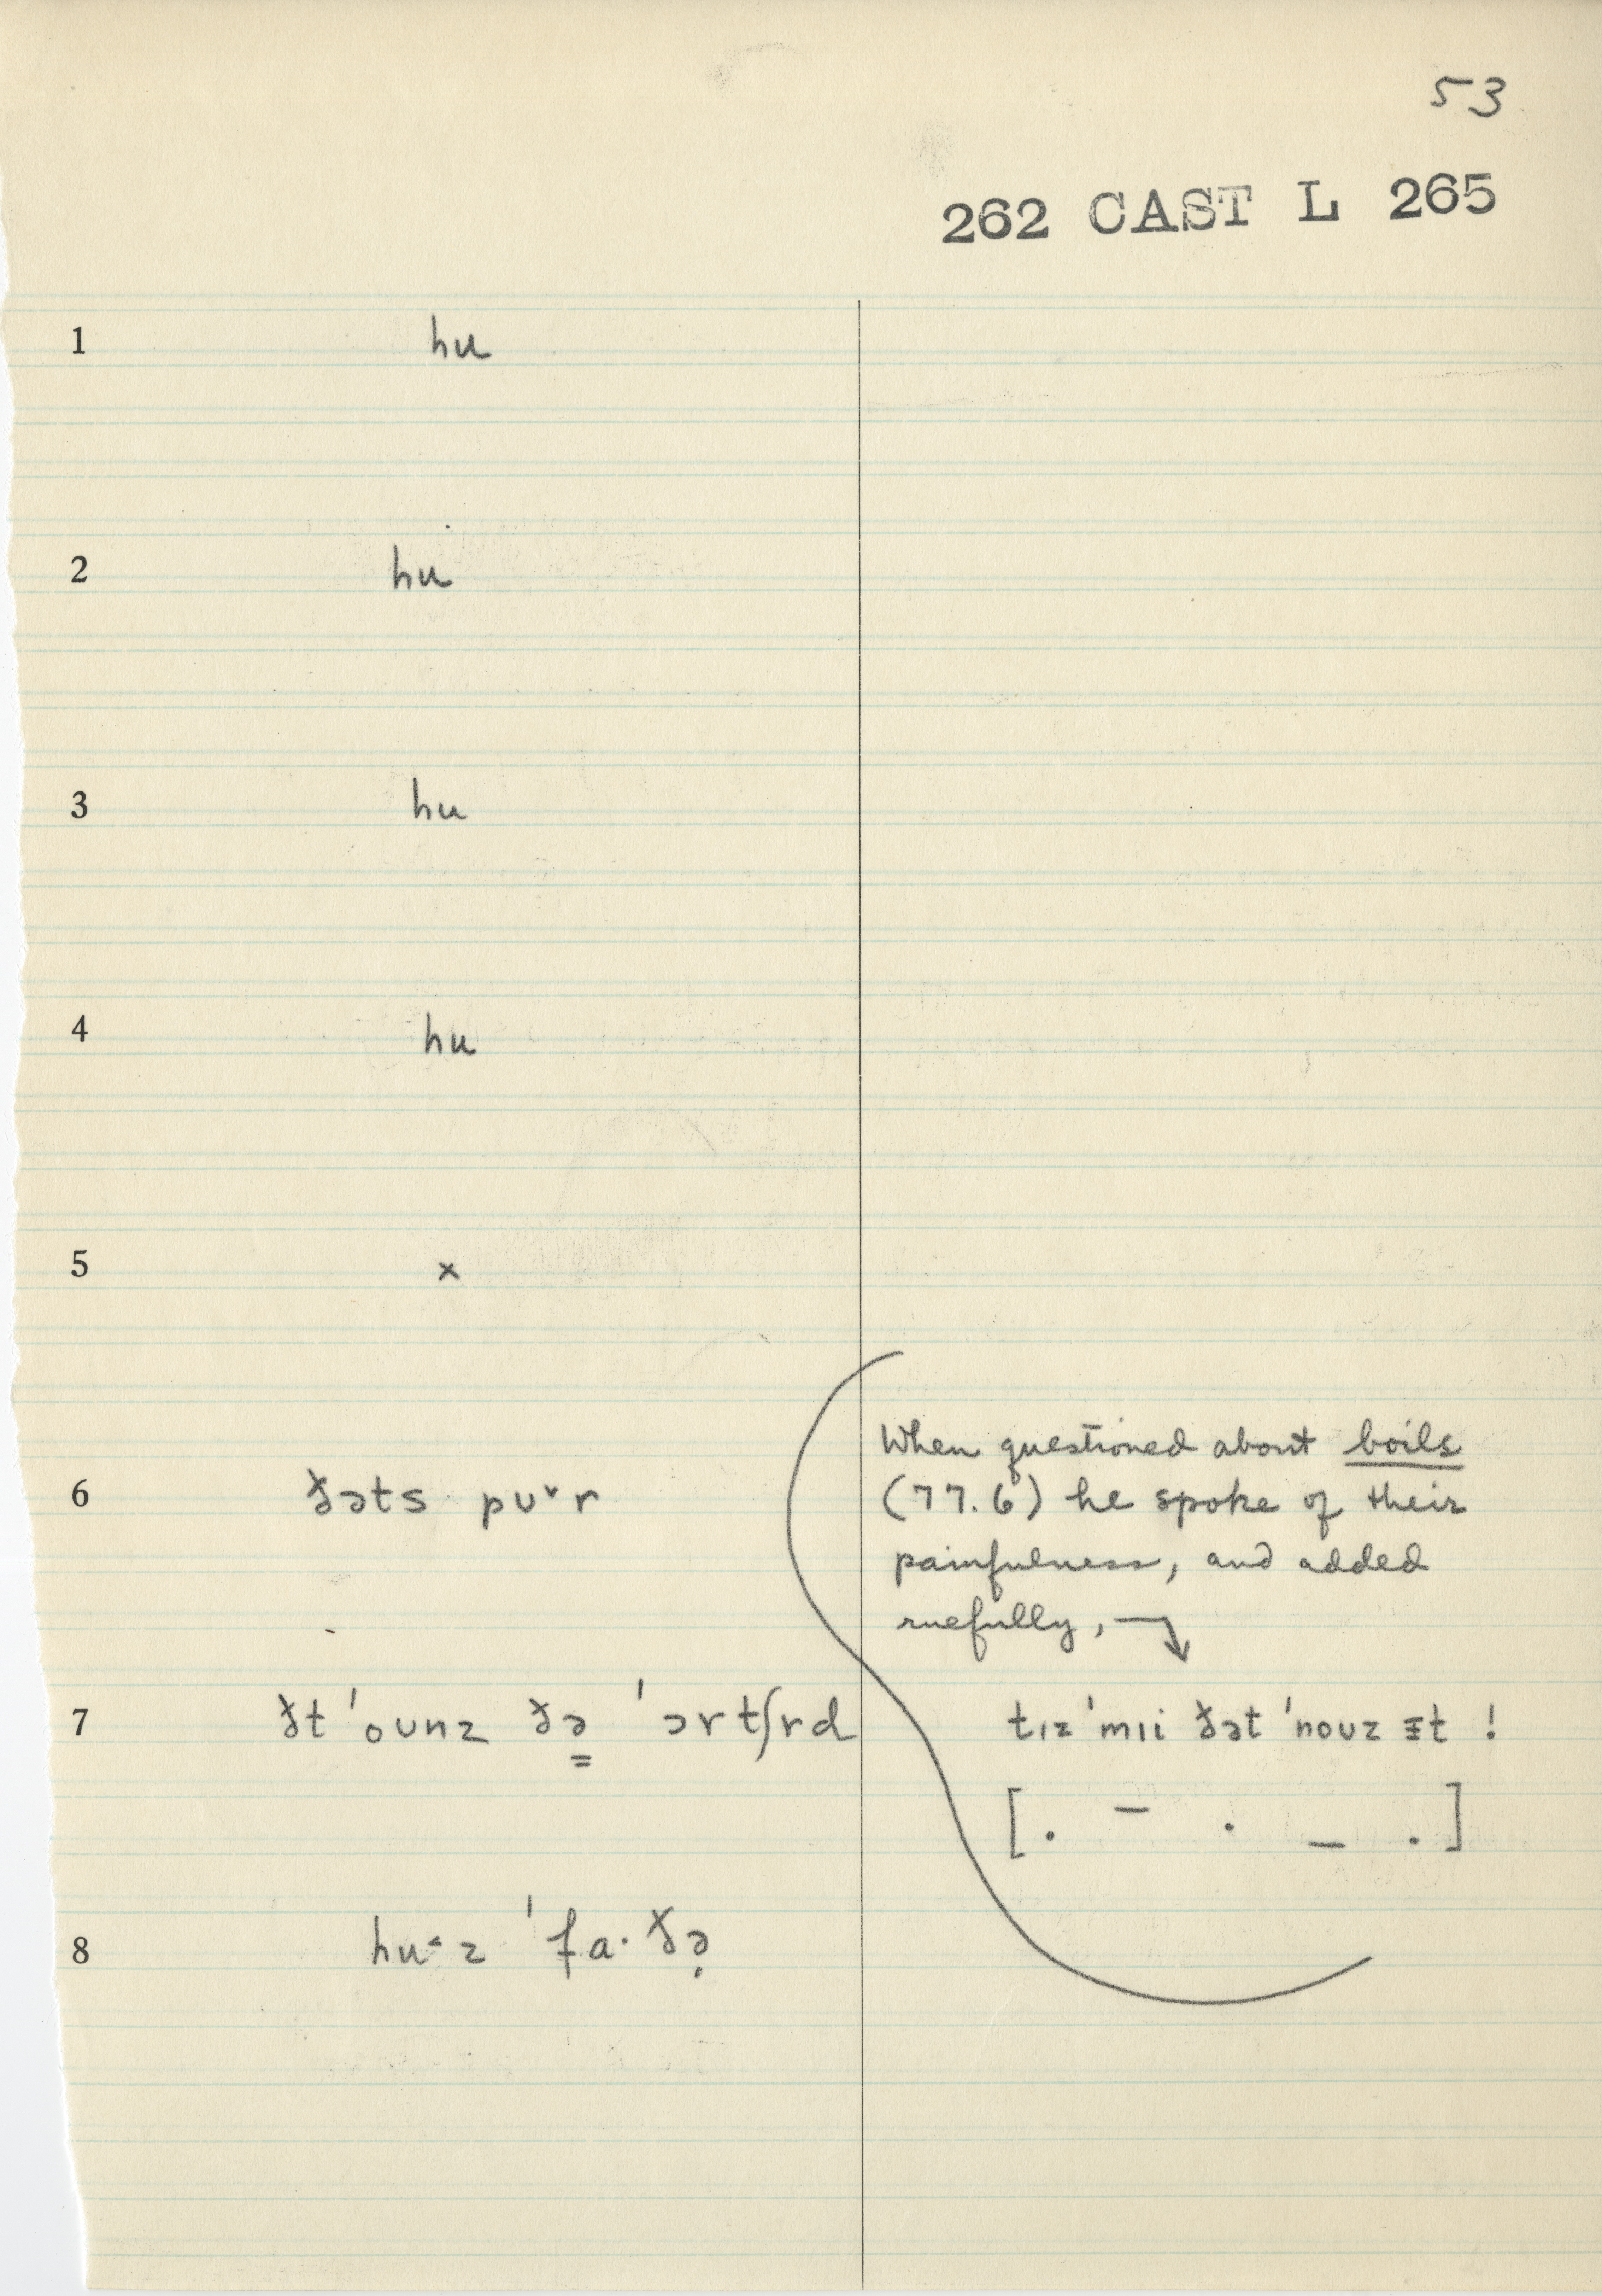 53
262 CAST L 265
1 hu
2 hu
3 hu
4 hu
5 x
When questioned about boils
6 ðəts pʊ˞r
(77.6) he spoke of their
painfulness, and added
ruefully, →
7 ðt ˈoʊnz ðə̳ ˈɔrtʃrd
tɪz ˈmɪi ðət ˈnoʊz ɪt !
[. – . _ .]
8 huˑz ˈfa·ðə̣